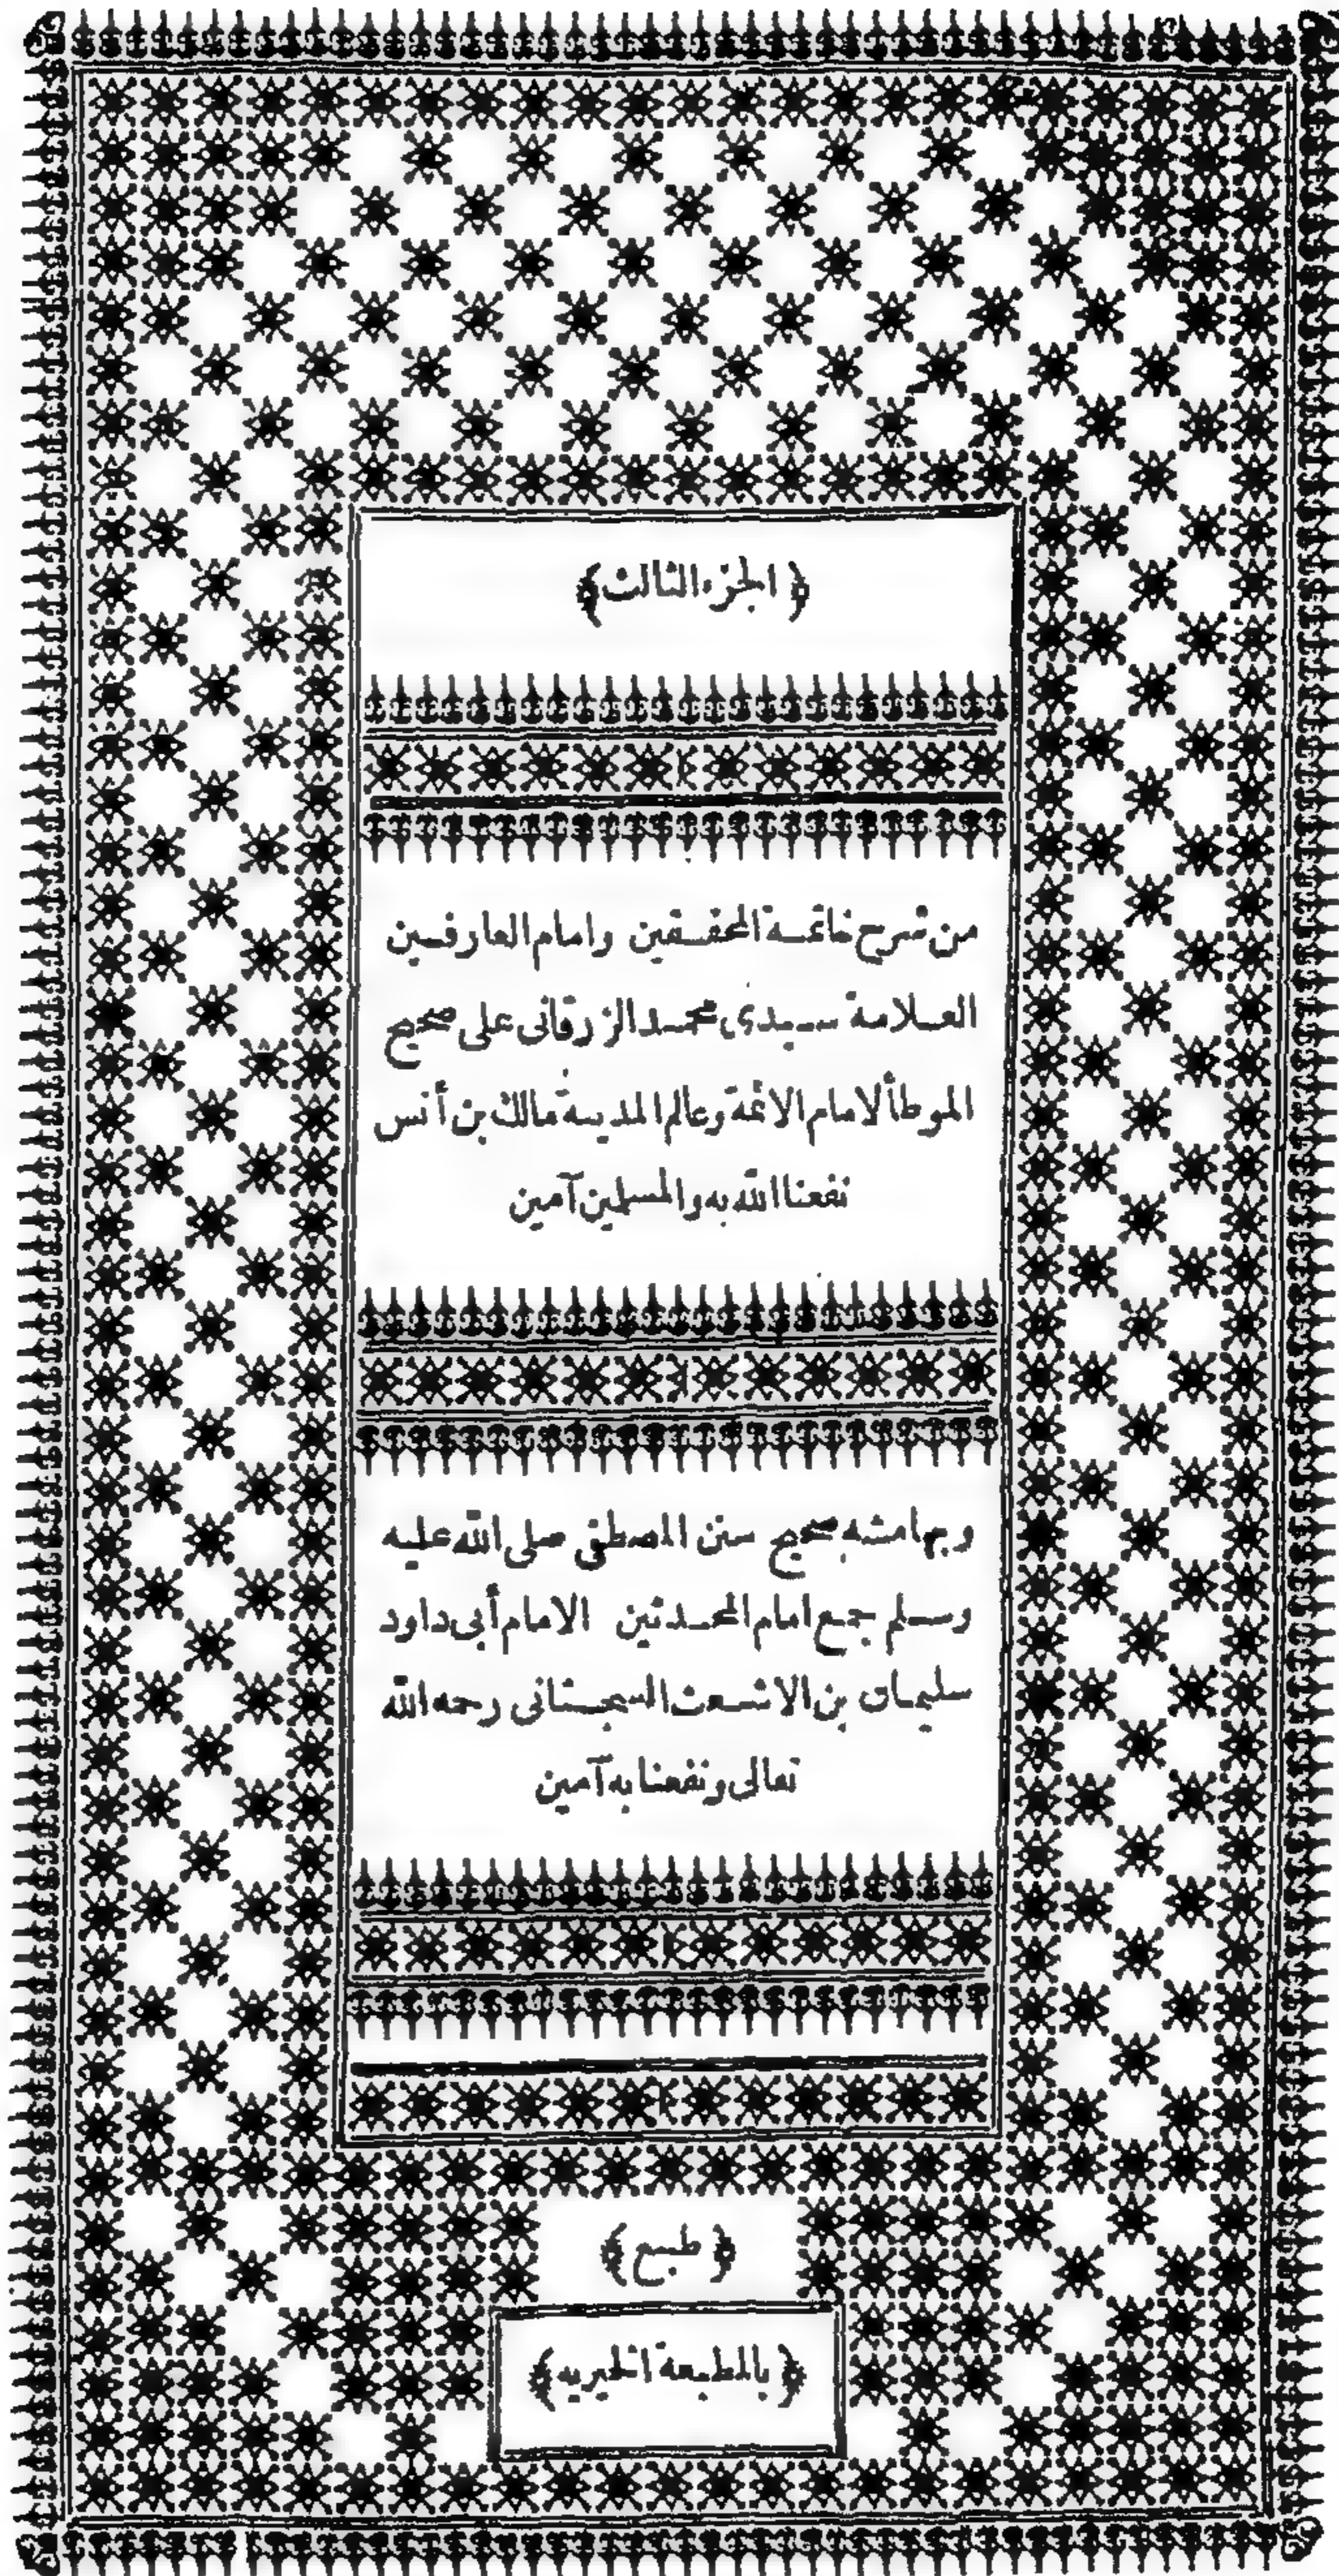 ﴿ الجزء الثالث ﴾
من شرح خاتمة المحققين وامام العارفين
العلامة سيدى محمد الزرقانى على صحيح
الموطألامام الائمة وعالم المدينة مالك بن أنس
نفعنا الله به والمسلمين آمين
وبهامشه صحيح سنن المصطفى صلى الله عليه
وسلم جمع امام المحدثين الامام أبى داود
سليمان بن الاشعث السجستانى رحمه الله
تعالى ونفعنا به آمين
﴿ طبع ﴾
﴿ بالمطبعة الخيريه ﴾